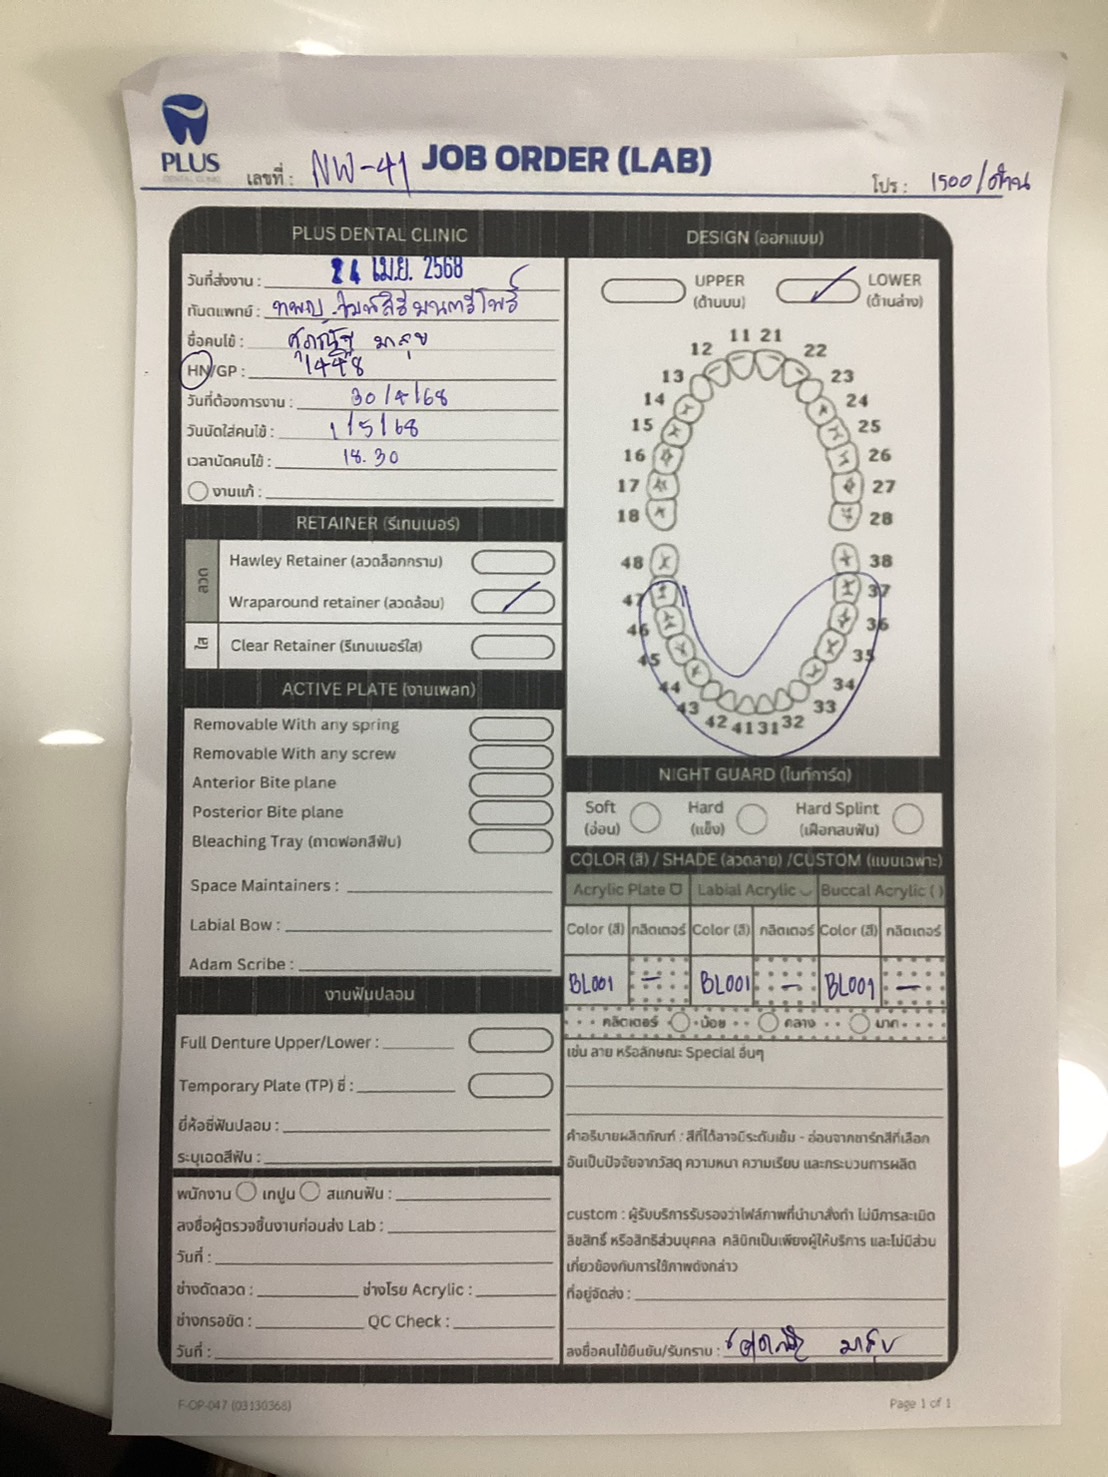 PLUS
DENTAL CLINIC
เลขที่ : NW-41
JOB ORDER (LAB)
โปร : 1500/ด้าน
PLUS DENTAL CLINIC
วันที่ส่งงาน : 24 เม.ย. 2568
ทันตแพทย์ : ทพญ.
ชื่อคนไข้ : ศุภณัฐ มาสุข
HN/GP : 1448
วันที่ต้องการงาน : 30/4/68
วันนัดใส่คนไข้ : 1/5/68
เวลานัดคนไข้ : 18.30
งานแก้ :
RETAINER (รีเทนเนอร์)
ลวด
Hawley Retainer (ลวดล็อกกราม)
Wraparound retainer (ลวดล้อม)
ใส
Clear Retainer (รีเทนเนอร์ใส)
ACTIVE PLATE (งานเพลท)
Removable With any spring
Removable With any screw
Anterior Bite plane
Posterior Bite plane
Bleaching Tray (ถาดฟอกสีฟัน)
Space Maintainers :
Labial Bow :
Adam Scribe :
งานฟันปลอม
Full Denture Upper/Lower :
Temporary Plate (TP) ซี่ :
ยี่ห้อซี่ฟันปลอม :
ระบุเฉดสีฟัน :
พนักงาน เทปูน สแกนฟัน :
ลงชื่อผู้ตรวจชิ้นงานก่อนส่ง Lab :
วันที่ :
ช่างดัดลวด : ช่างโรย Acrylic :
ช่างกรอขัด : QC Check :
วันที่ :
DESIGN (ออกแบบ)
UPPER (ด้านบน)
LOWER (ด้านล่าง)
11 21
12 22
13 23
14 24
15 25
16 26
17 27
18 28
48 38
47 37
46 36
45 35
44 34
43 33
42 41 31 32
NIGHT GUARD (ไนท์การ์ด)
Soft (อ่อน)
Hard (แข็ง)
Hard Splint (เฝือกสบฟัน)
COLOR (สี) / SHADE (ลวดลาย) /CUSTOM (แบบเฉพาะ)
Acrylic Plate Labial Acrylic Buccal Acrylic ( )
Color (สี) กลิตเตอร์ Color (สี) กลิตเตอร์ Color (สี) กลิตเตอร์
BL001 – BL001 – BL001 –
กลิตเตอร์ น้อย กลาง มาก
เช่น ลาย หรือลักษณะ Special อื่นๆ
คำอธิบายผลิตภัณฑ์ : สีที่ได้อาจมีระดับเข้ม - อ่อนจากชาร์ทสีที่เลือก
อันเป็นปัจจัยจากวัสดุ ความหนา ความเรียบ และกระบวนการผลิต
custom : ผู้รับบริการรับรองว่าไฟล์ภาพที่นำมาสั่งทำ ไม่มีการละเมิด
ลิขสิทธิ์ หรือสิทธิส่วนบุคคล คลินิกเป็นเพียงผู้ให้บริการ และไม่มีส่วน
เกี่ยวข้องกับการใช้ภาพดังกล่าว
ที่อยู่จัดส่ง :
ลงชื่อคนไข้ยืนยัน/รับทราบ : ศุภณัฐ มาสุข
F-OP-047 (03130368)
Page 1 of 1